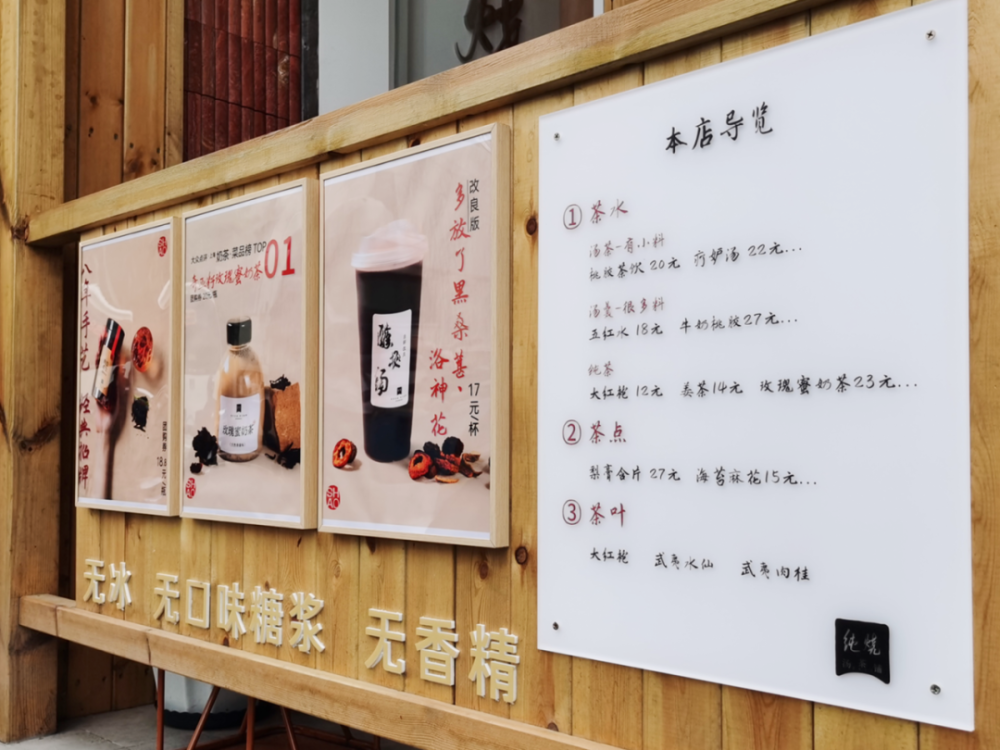 八年手艺 经典招牌
团购券 18.8元/瓶
大众点评·上海 奶茶·菜品榜 TOP 01
玫瑰蜜奶茶
玫瑰蜜奶茶
改良版
多放了黑桑葚、
洛神花
17元/杯
酸梅汤
无冰 无口味糖浆 无香精
本店导览
① 茶水
汤茶-有小料
桃胶茶饮 20元 疗妒汤 22元...
汤羹-很多料
五红水 18元 牛奶桃胶27元...
纯茶
大红袍 12元 姜茶14元 玫瑰蜜奶茶23元...
② 茶点
梨膏含片 27元 海苔麻花15元...
③ 茶叶
大红袍 武夷水仙 武夷肉桂